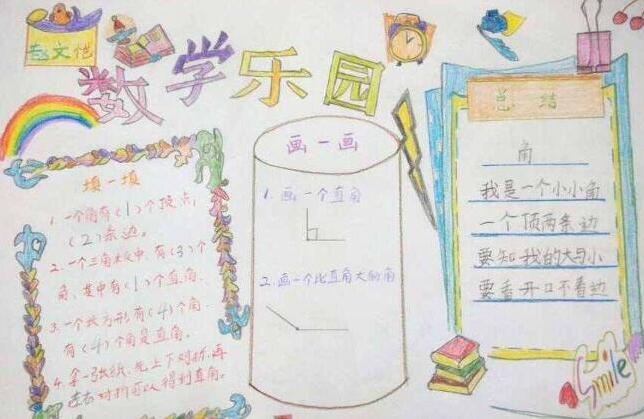 赵文恺
数学乐园
填一填
1.一个角有(1)个顶点,
(2)条边。
2.一个三角板中,有(3)个
角,其中有(1)个直角.
3.一个长方形有(4)个角.
有(4)个角是直角。
4.拿一张纸,先上下对折,再
左右对折可以得到直角。
画一画
1.画一个直角
2.画一个比直角大的角
总结
角
我是一个小小角
一个顶两条边
要知我的大与小
要看开口不看边
Smile